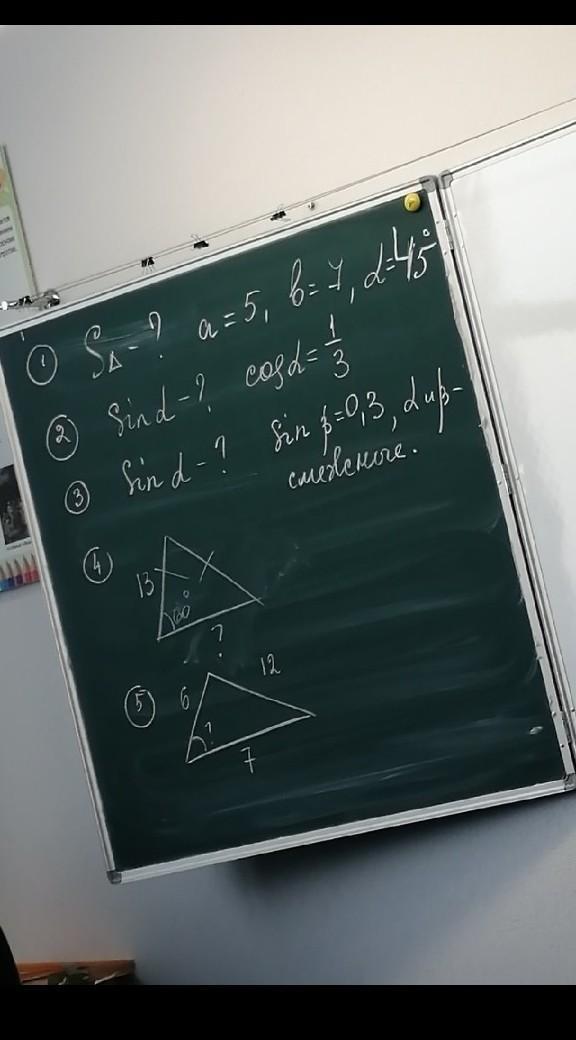 ① S△ - ? a = 5, b = 7, α = 45°
② Sin α - ? cos α = 1/3
③ Sin α - ? Sin β = 0,3, α и β -
смежные.
④
13
60°
?
⑤ 6 12
?
7